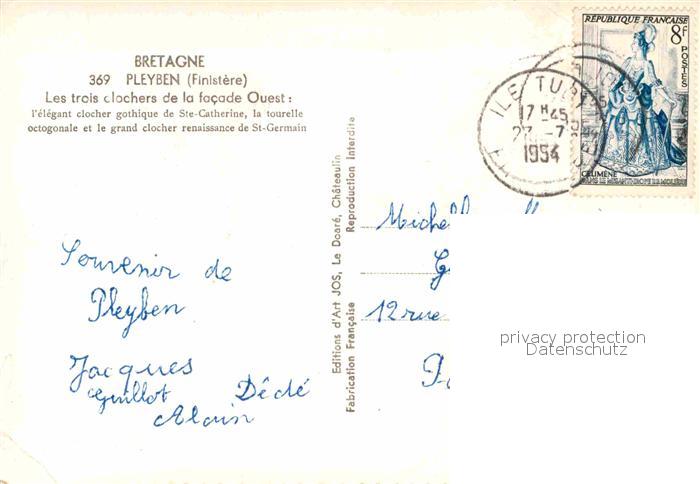 BRETAGNE
369 PLEYBEN (Finistère)
Les trois clochers de la façade Ouest :
l'élégant clocher gothique de Ste-Catherine, la tourelle
octogonale et le grand clocher renaissance de St-Germain
RÉPUBLIQUE FRANÇAISE
8F
POSTES
CÉLIMÈNE
DANS LE MISANTHROPE DE MOLIÈRE
ILE TU
17H45
27 -7
1954
Editions d'Art JOS, Le Doaré, Châteaulin
Fabrication Française Reproduction Interdite
Souvenir de
Pleyben
Jacques
Guillot Dédé
Alain
12 rue
privacy protection
Datenschutz